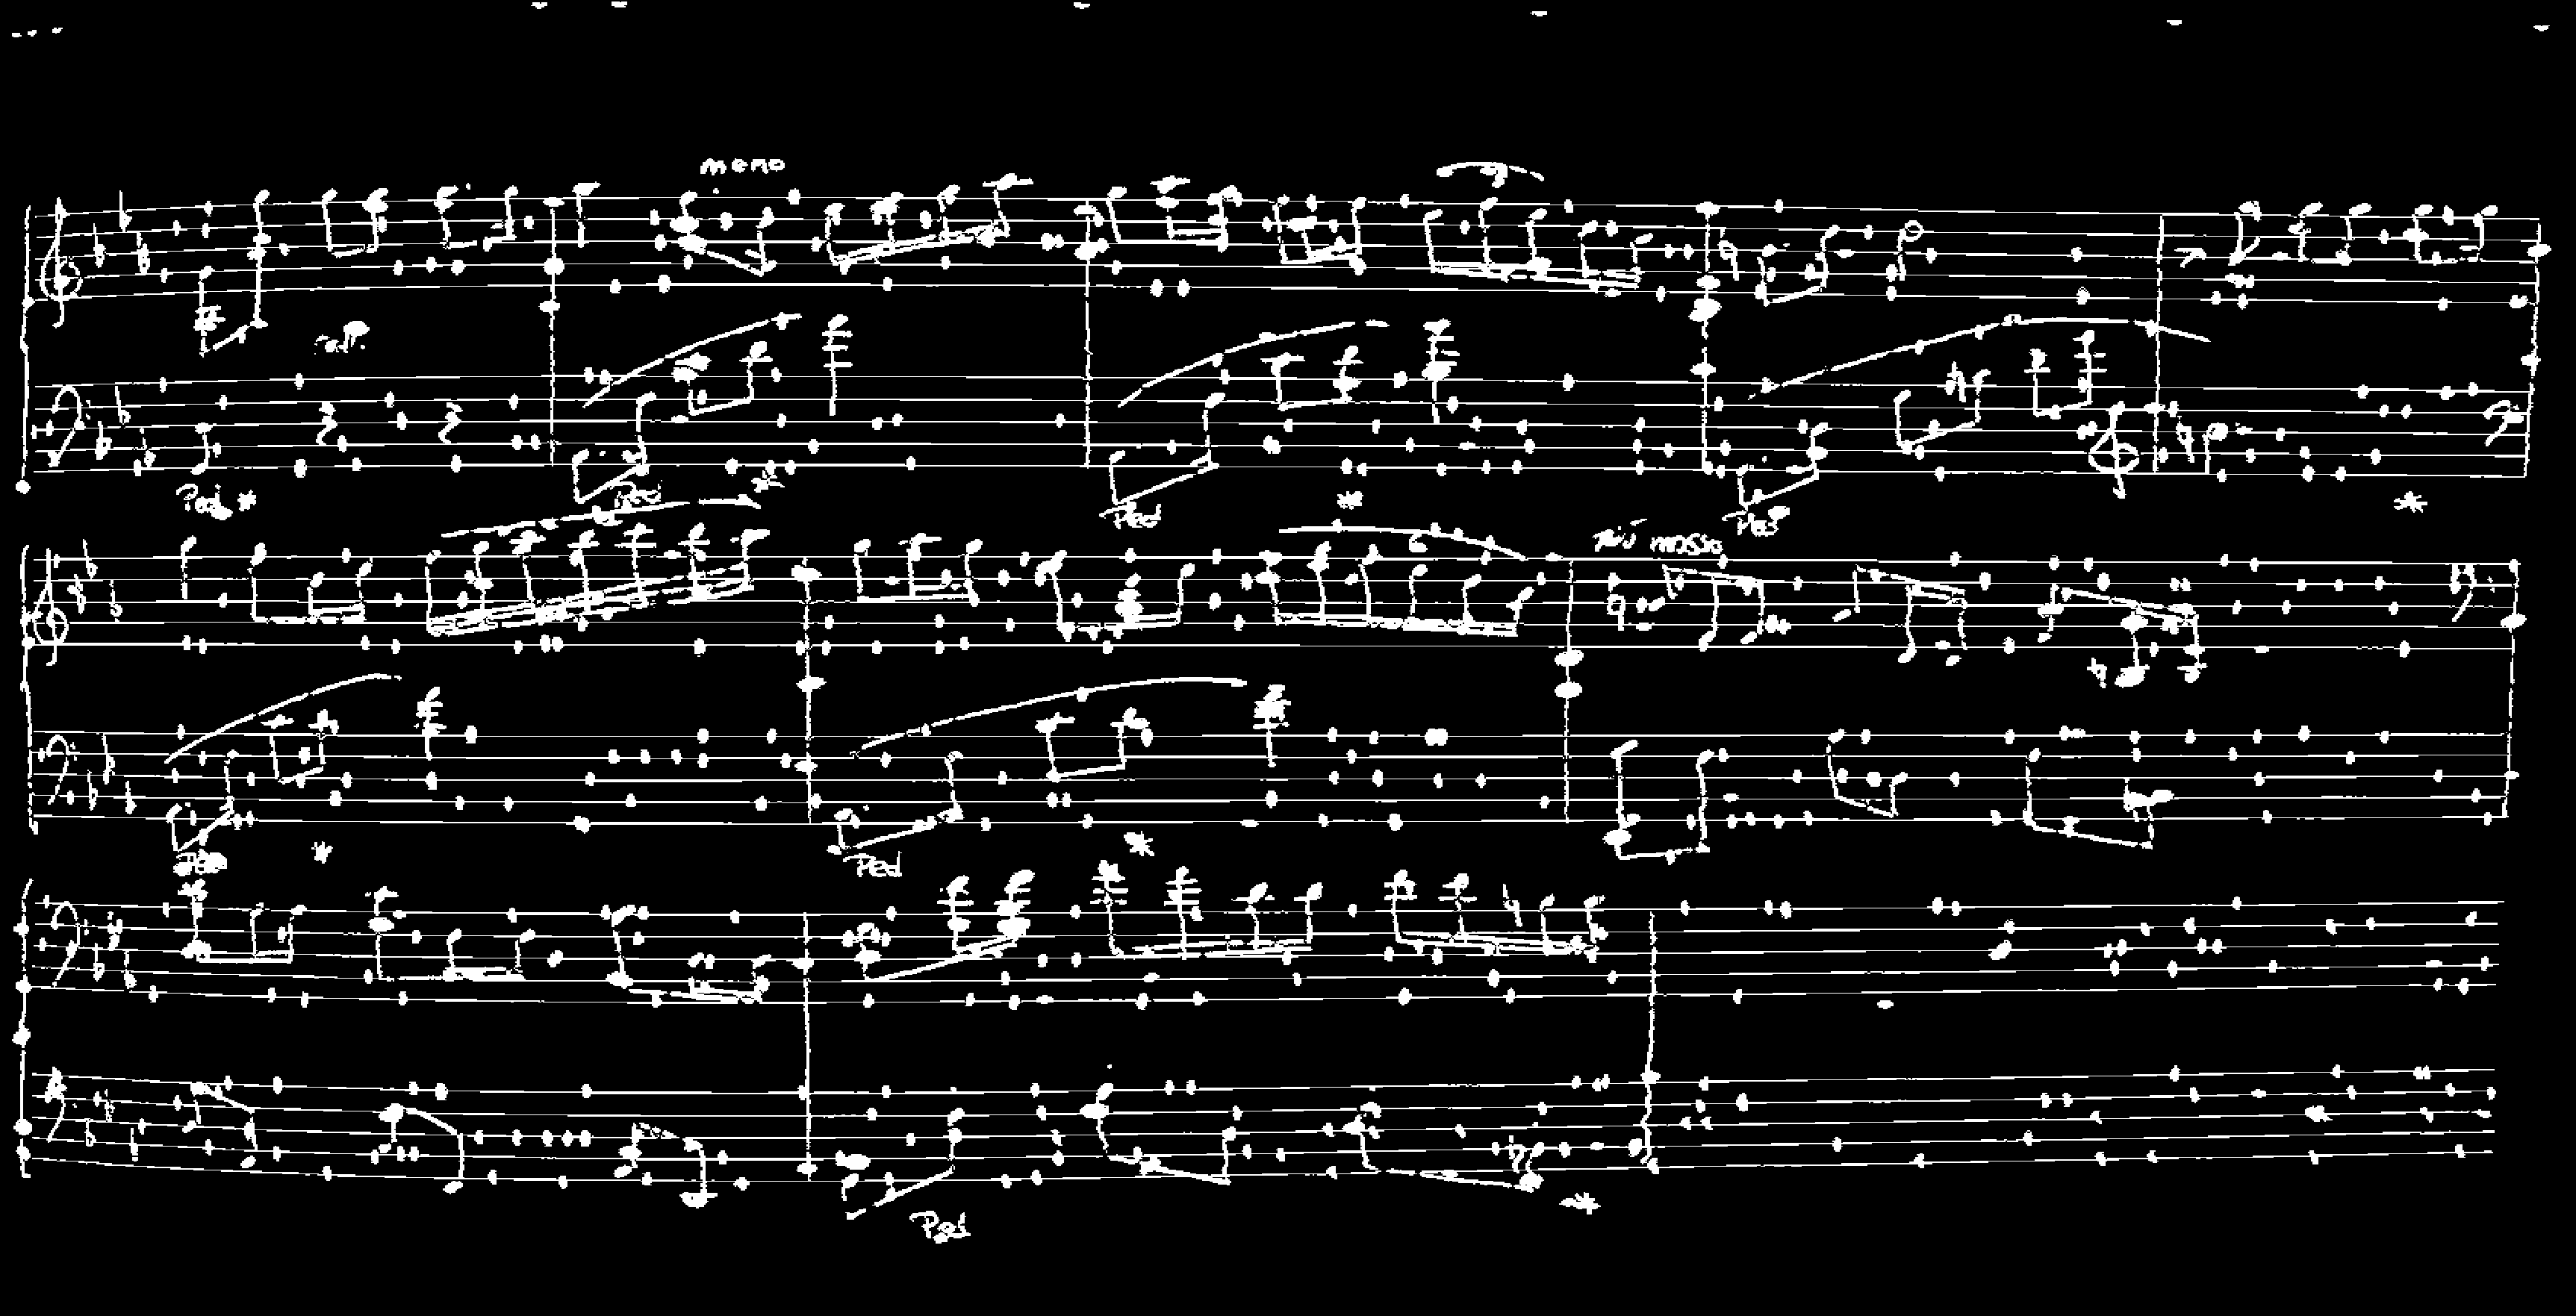 meno
rall.
Ped * Ped * Ped * Ped *
6
più mosso
Ped * Ped *
Ped *